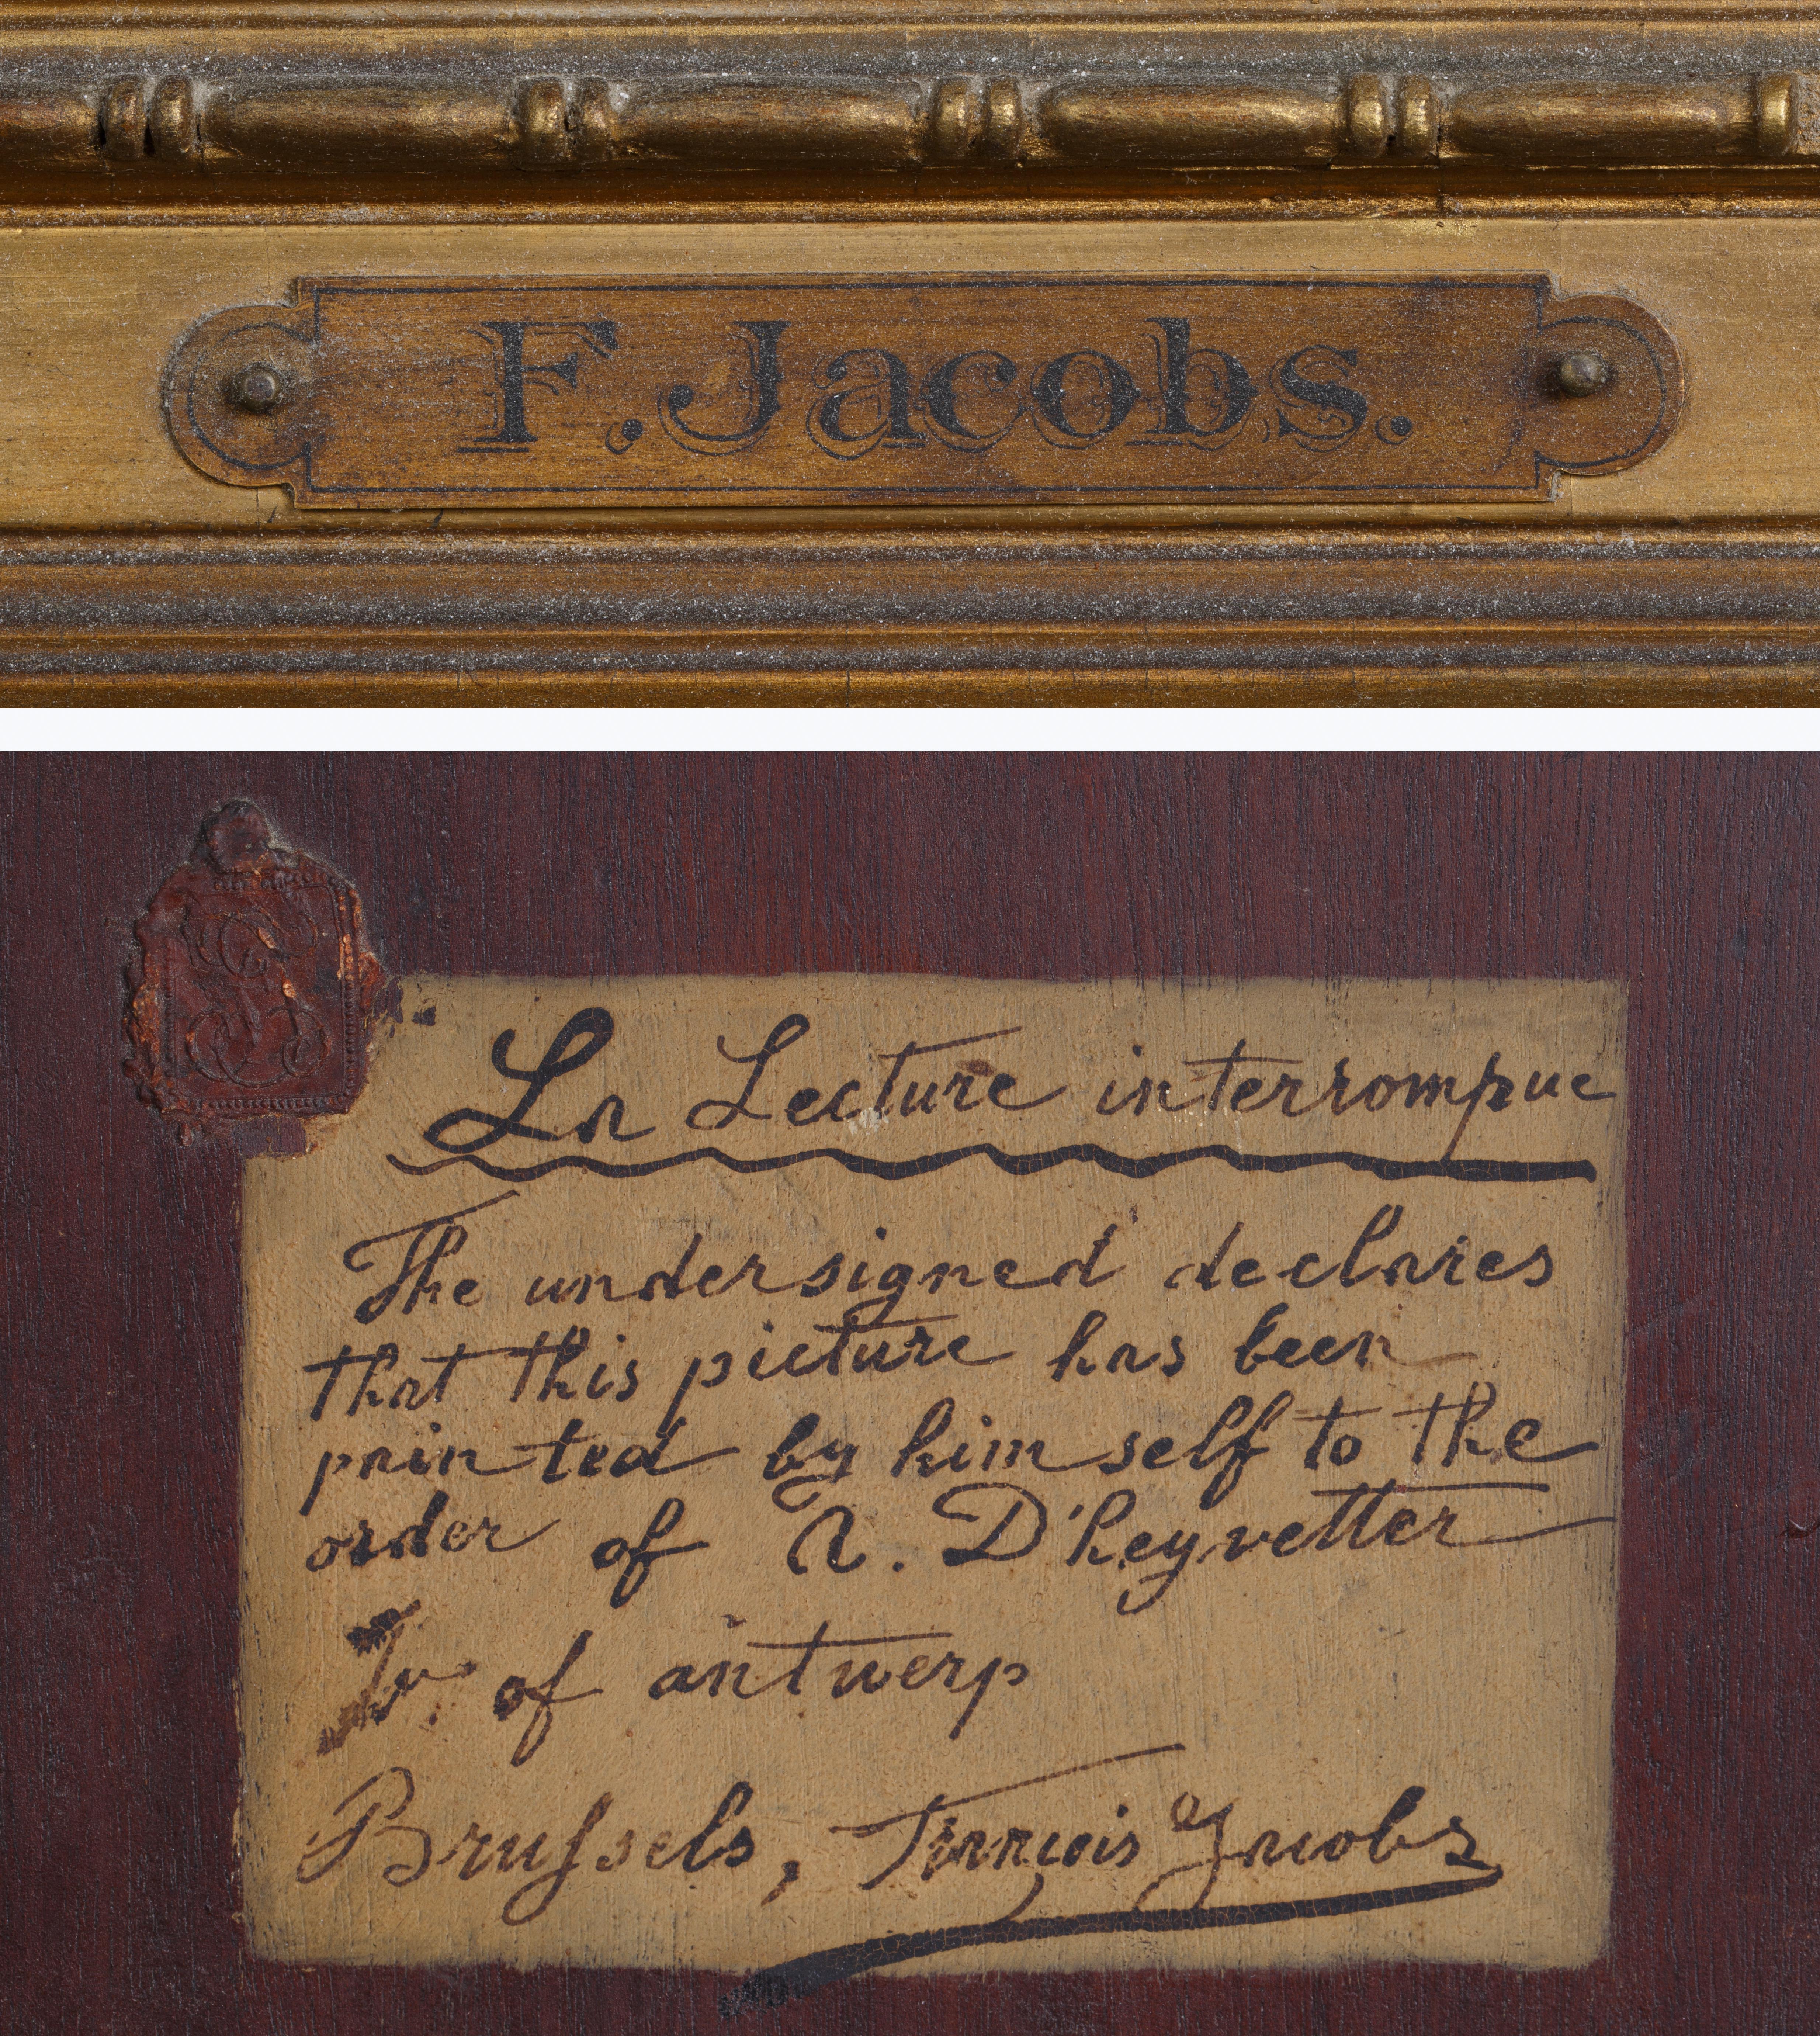 F. Jacobs.
La Lecture interrompue
The undersigned declares
that this picture has been
painted by himself to the
order of A. D'heyvetter
of antwerp
Brussels, François Jacobs